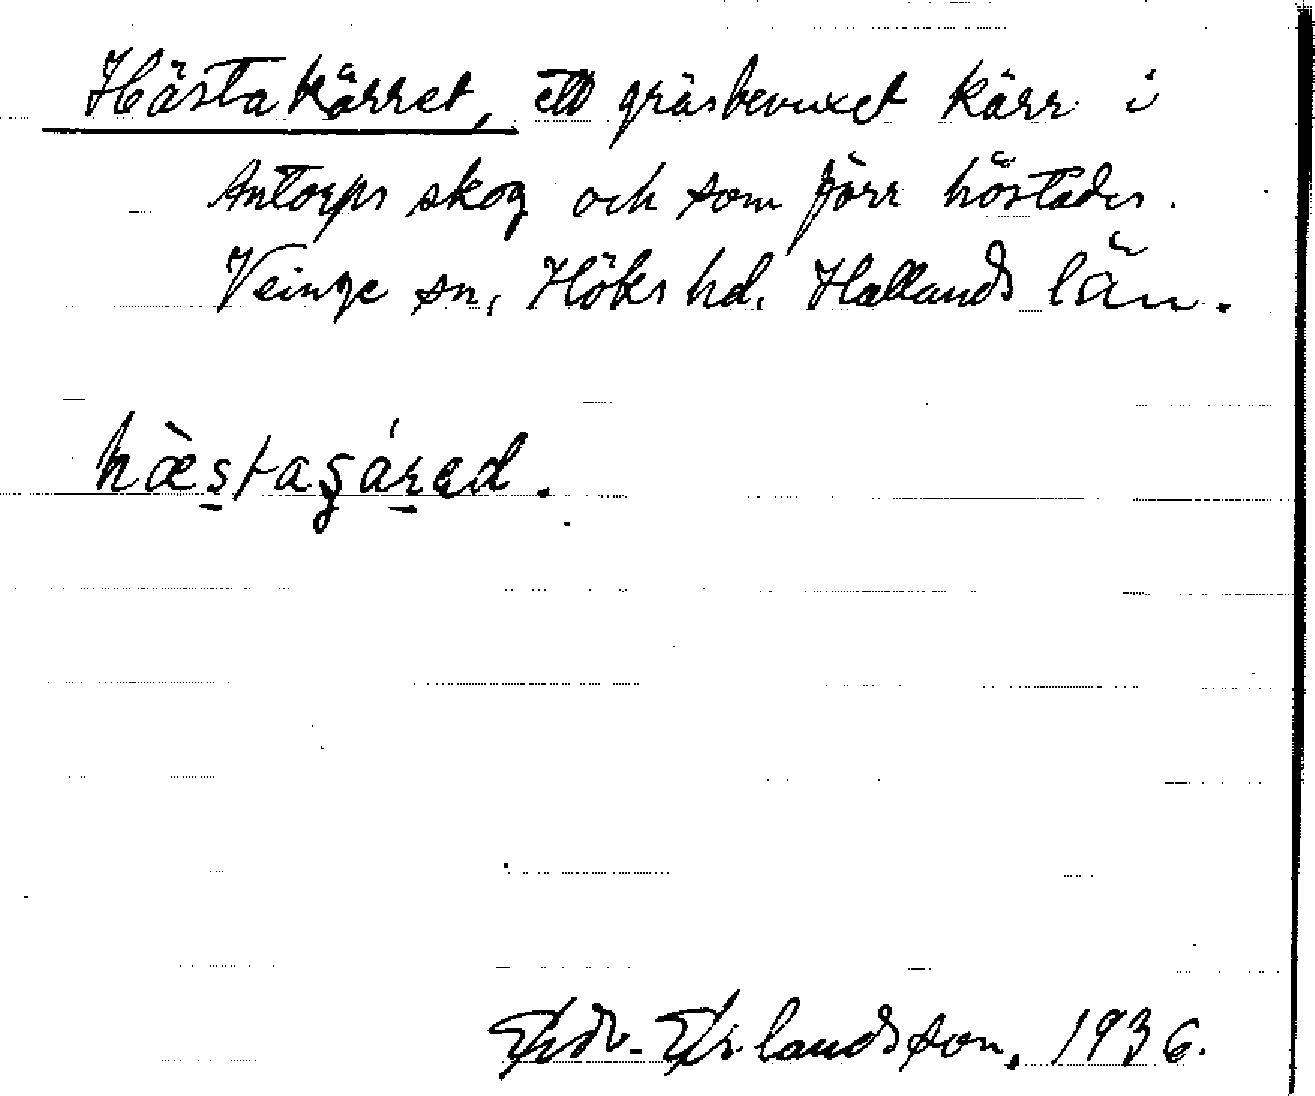 Hästakärret, ett gräsbevuxet kärr i
Antorps skog och som förr höstades.
Veinge sn, Höks hd. Hallands län.
hæ̀stagárəd.
Edv. Erlandsson, 1936.